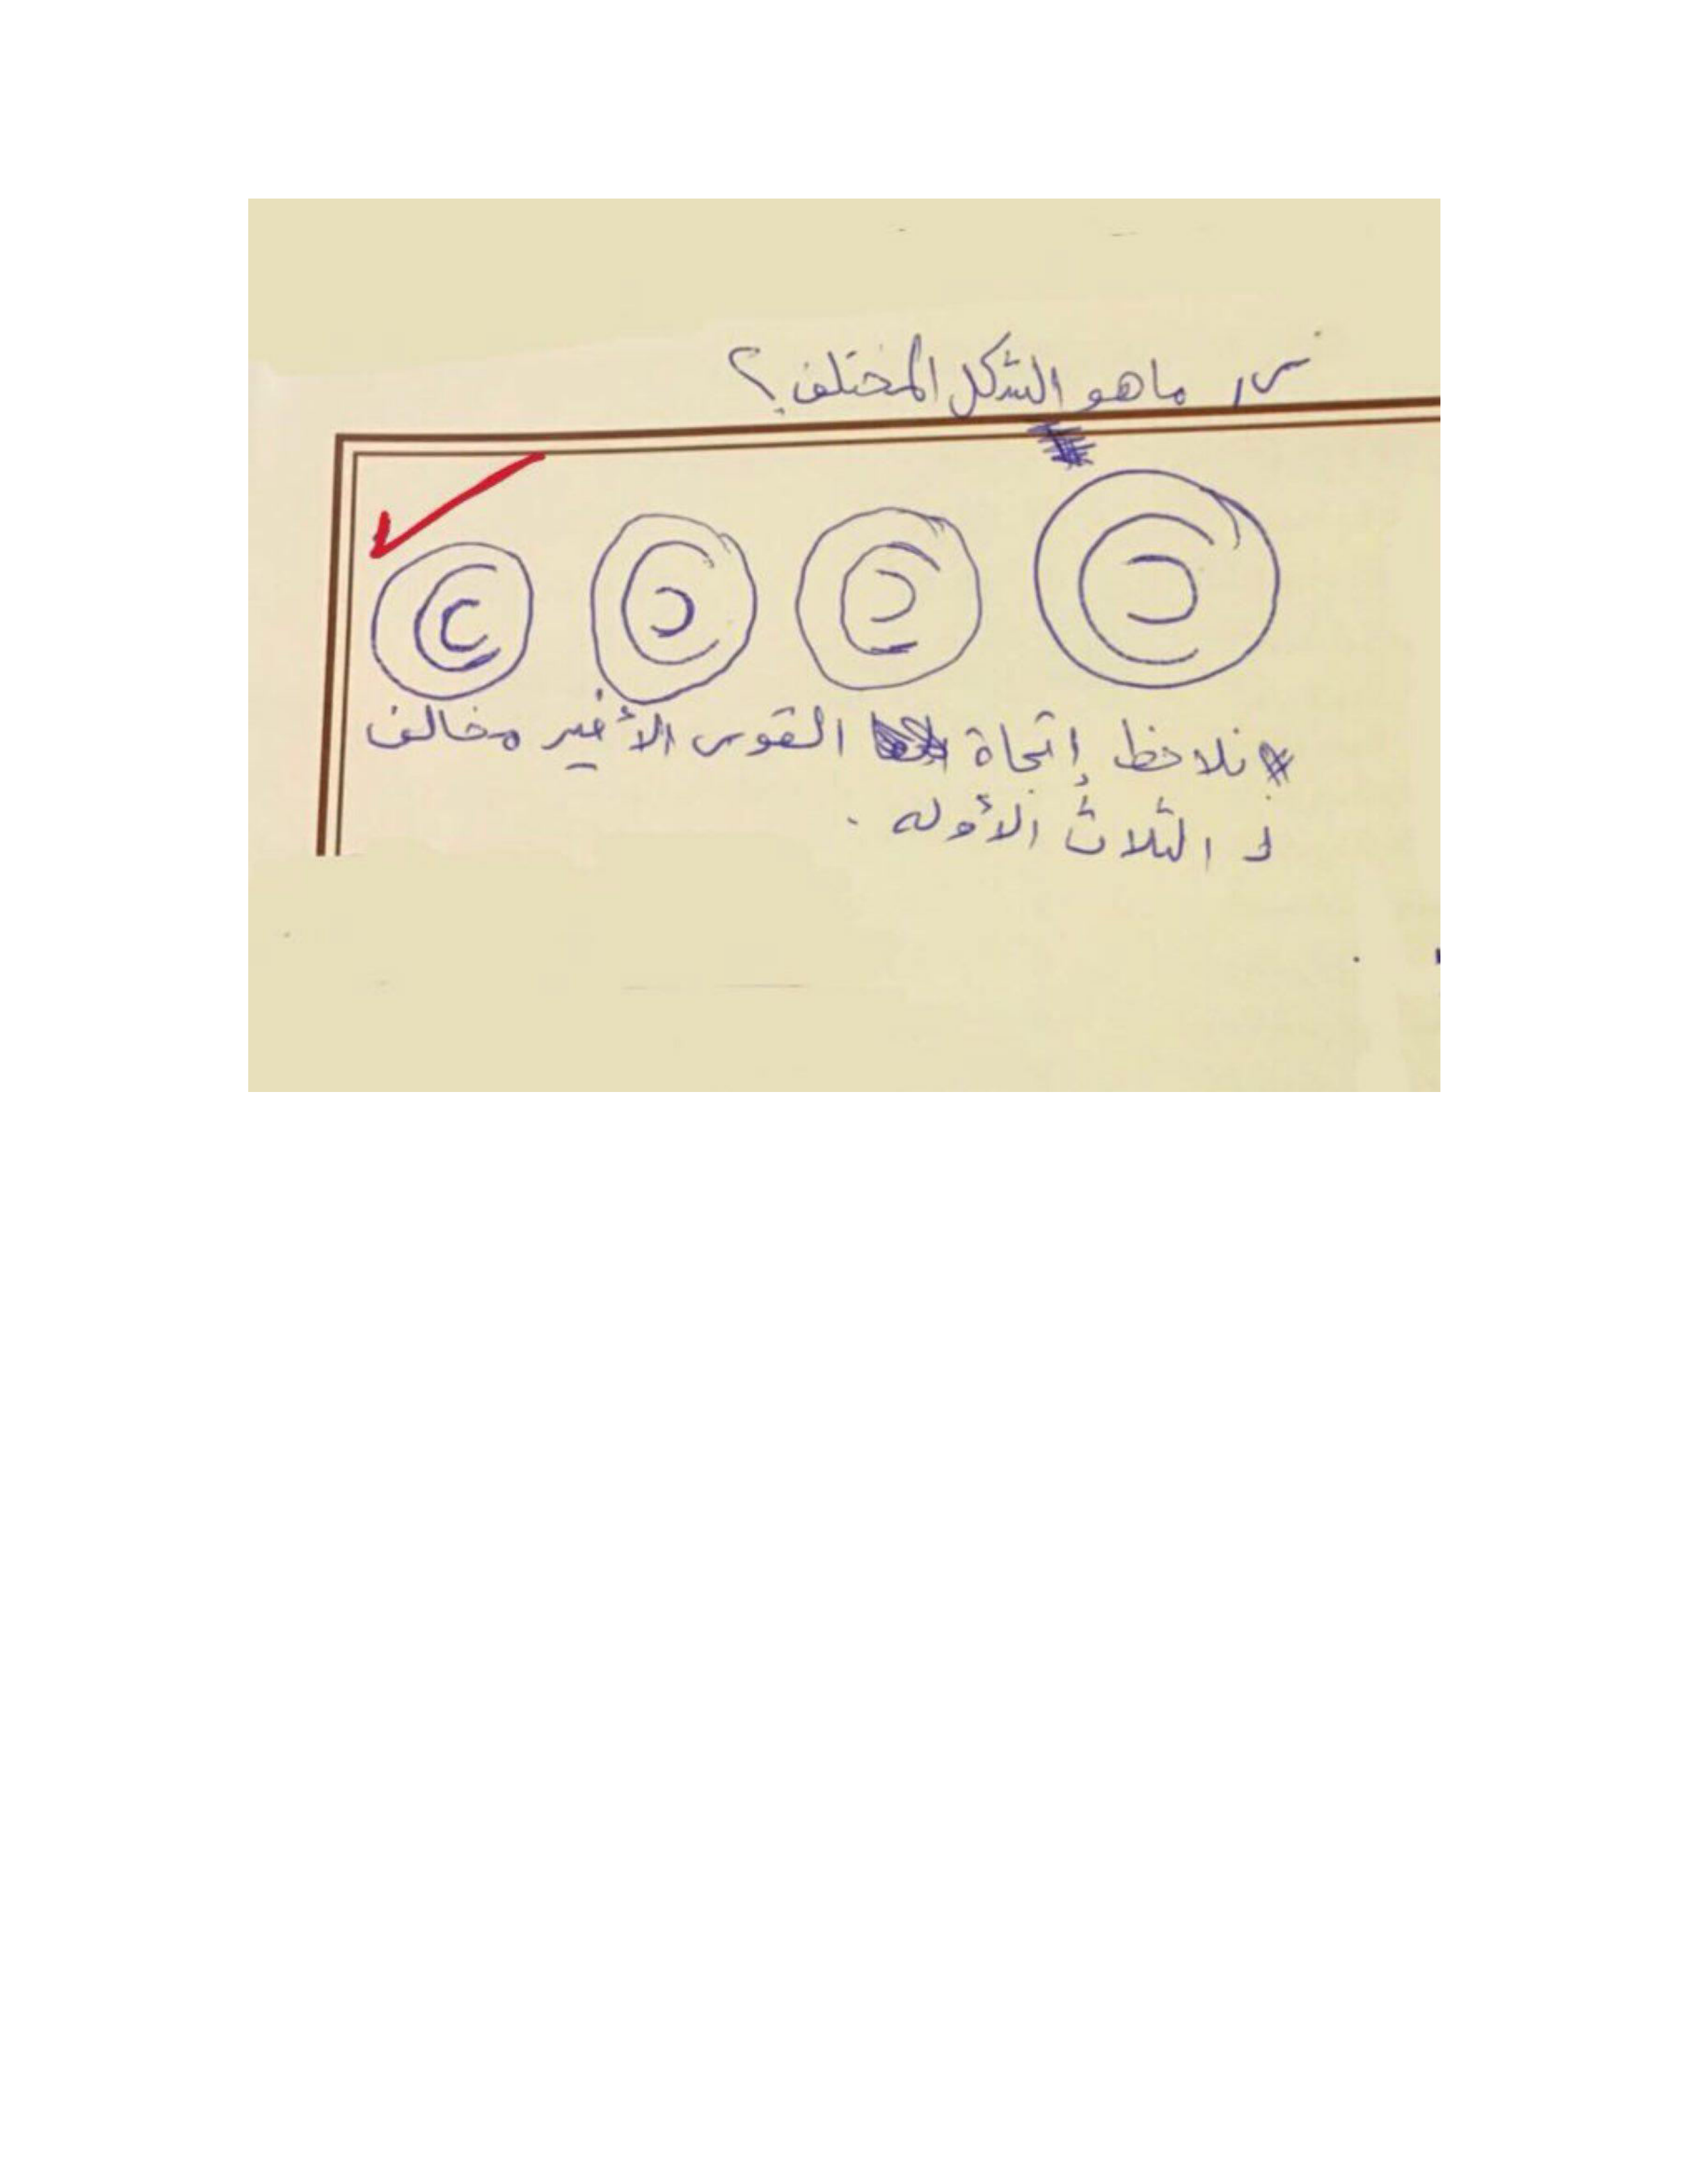 س١ ماهو الشكل المختلف؟
نلاحظ إتجاة القوس الأخير مخالف
لـ الثلاث الأوله .